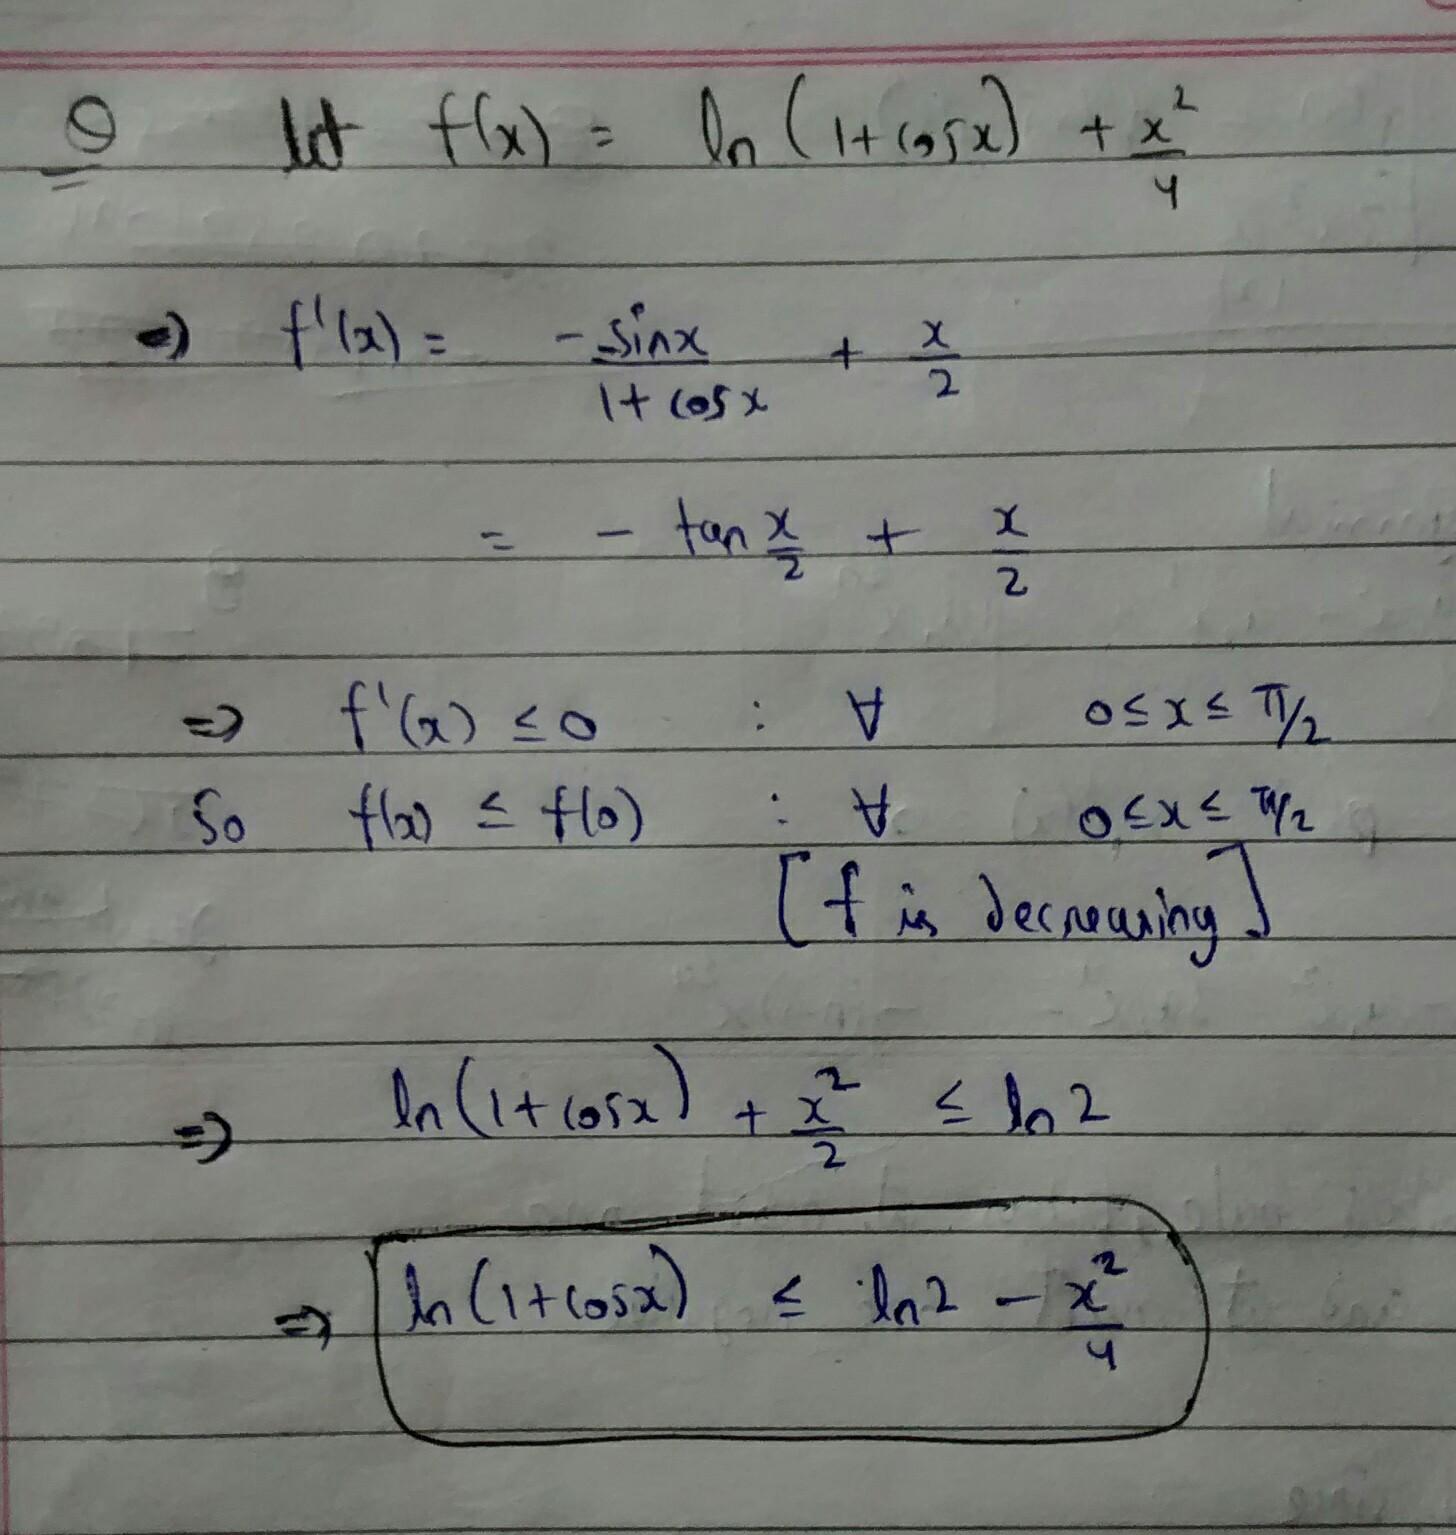 Q let f(x) = ln (1+cosx) + x²/4
⇒ f'(x) = -sinx/1+cosx + x/2
= - tan x/2 + x/2
⇒ f'(x) ≤ 0 : ∀ 0≤x≤π/2
So f(x) ≤ f(0) : ∀ 0≤x≤π/2
[f is decreasing]
⇒ ln(1+cosx) + x²/2 ≤ ln2
⇒ ln(1+cosx) ≤ ln2 - x²/4